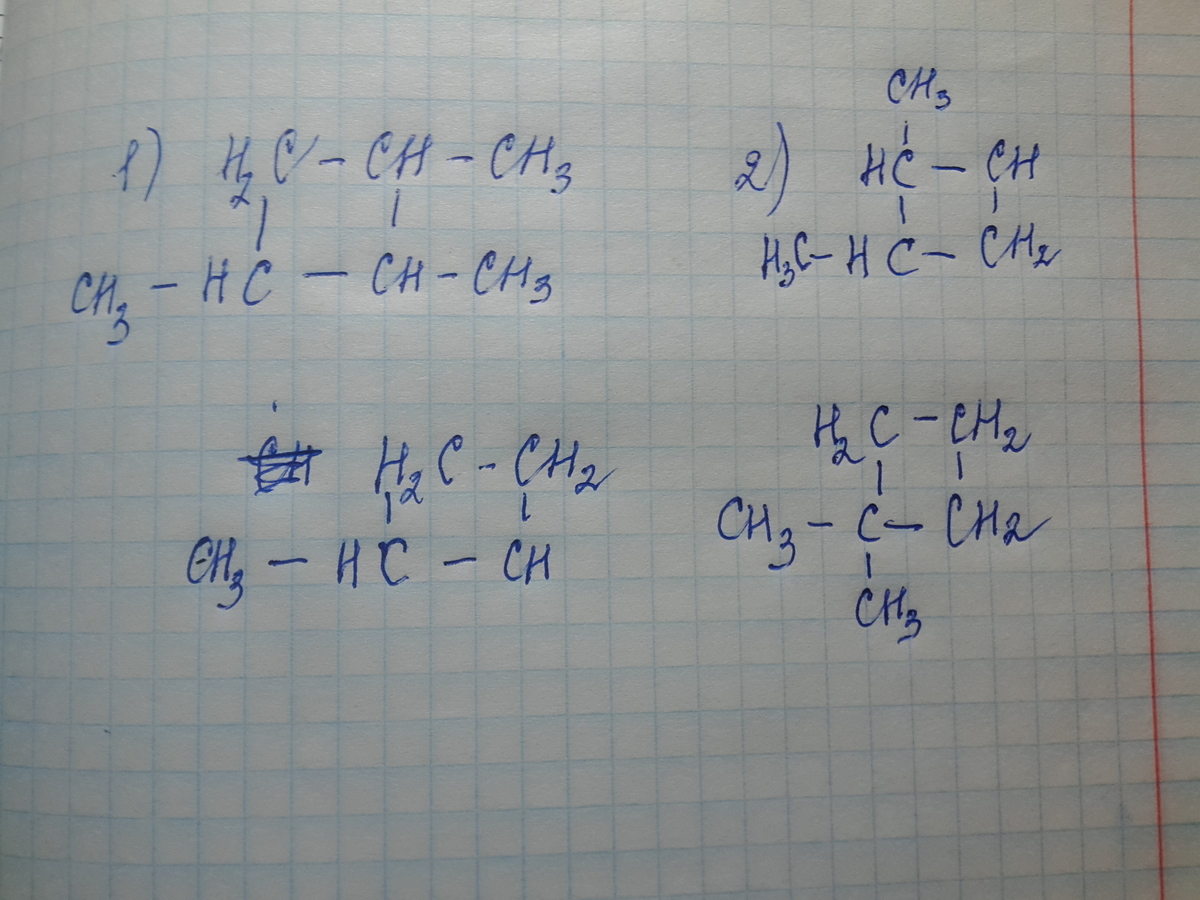 1) H2C - CH - CH3
CH3 - HC - CH - CH3
2) CH3
HC - CH
H3C - HC - CH2
H2C - CH2
CH3 - HC - CH
H2C - CH2
CH3 - C - CH2
CH3